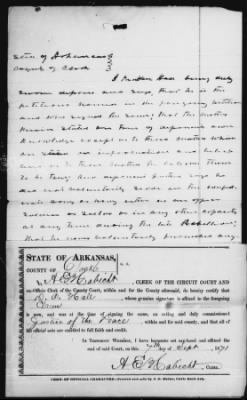 State of Arkansas
County of Clark
I Hall being duly
sworn deposes and says, that he is the
petitioner named in the foregoing petition
and who signed the same; that the matters
therein stated are true of deponents own
knowledge except as to those matters which
are stated on information and belief
and as to those matters he believes them
to be true. And deponent further says he
did not voluntarily serve in the
army or navy either as an officer
soldier or sailor or in any other capacity
at any time during the late Rebellion;
that he never voluntarily furnished any
STATE OF ARKANSAS,
COUNTY OF Clark } S. S.
I, A. E. Habicht, CLERK OF THE CIRCUIT COURT AND
Clerk of the County Court, within and for the County aforesaid, do hereby certify that
Hall whose genuine signature is affixed to the foregoing
is now, and was at the time of signing the same, an acting and duly commissioned
Justice of the Peace within and for said county, and that all of
his official acts are entitled to full faith and credit.
IN TESTIMONY WHEREOF, I have hereunto set my hand and affixed the
seal of said Court, on this 7th day of Sept. 1871
A. E. Habicht, CLERK